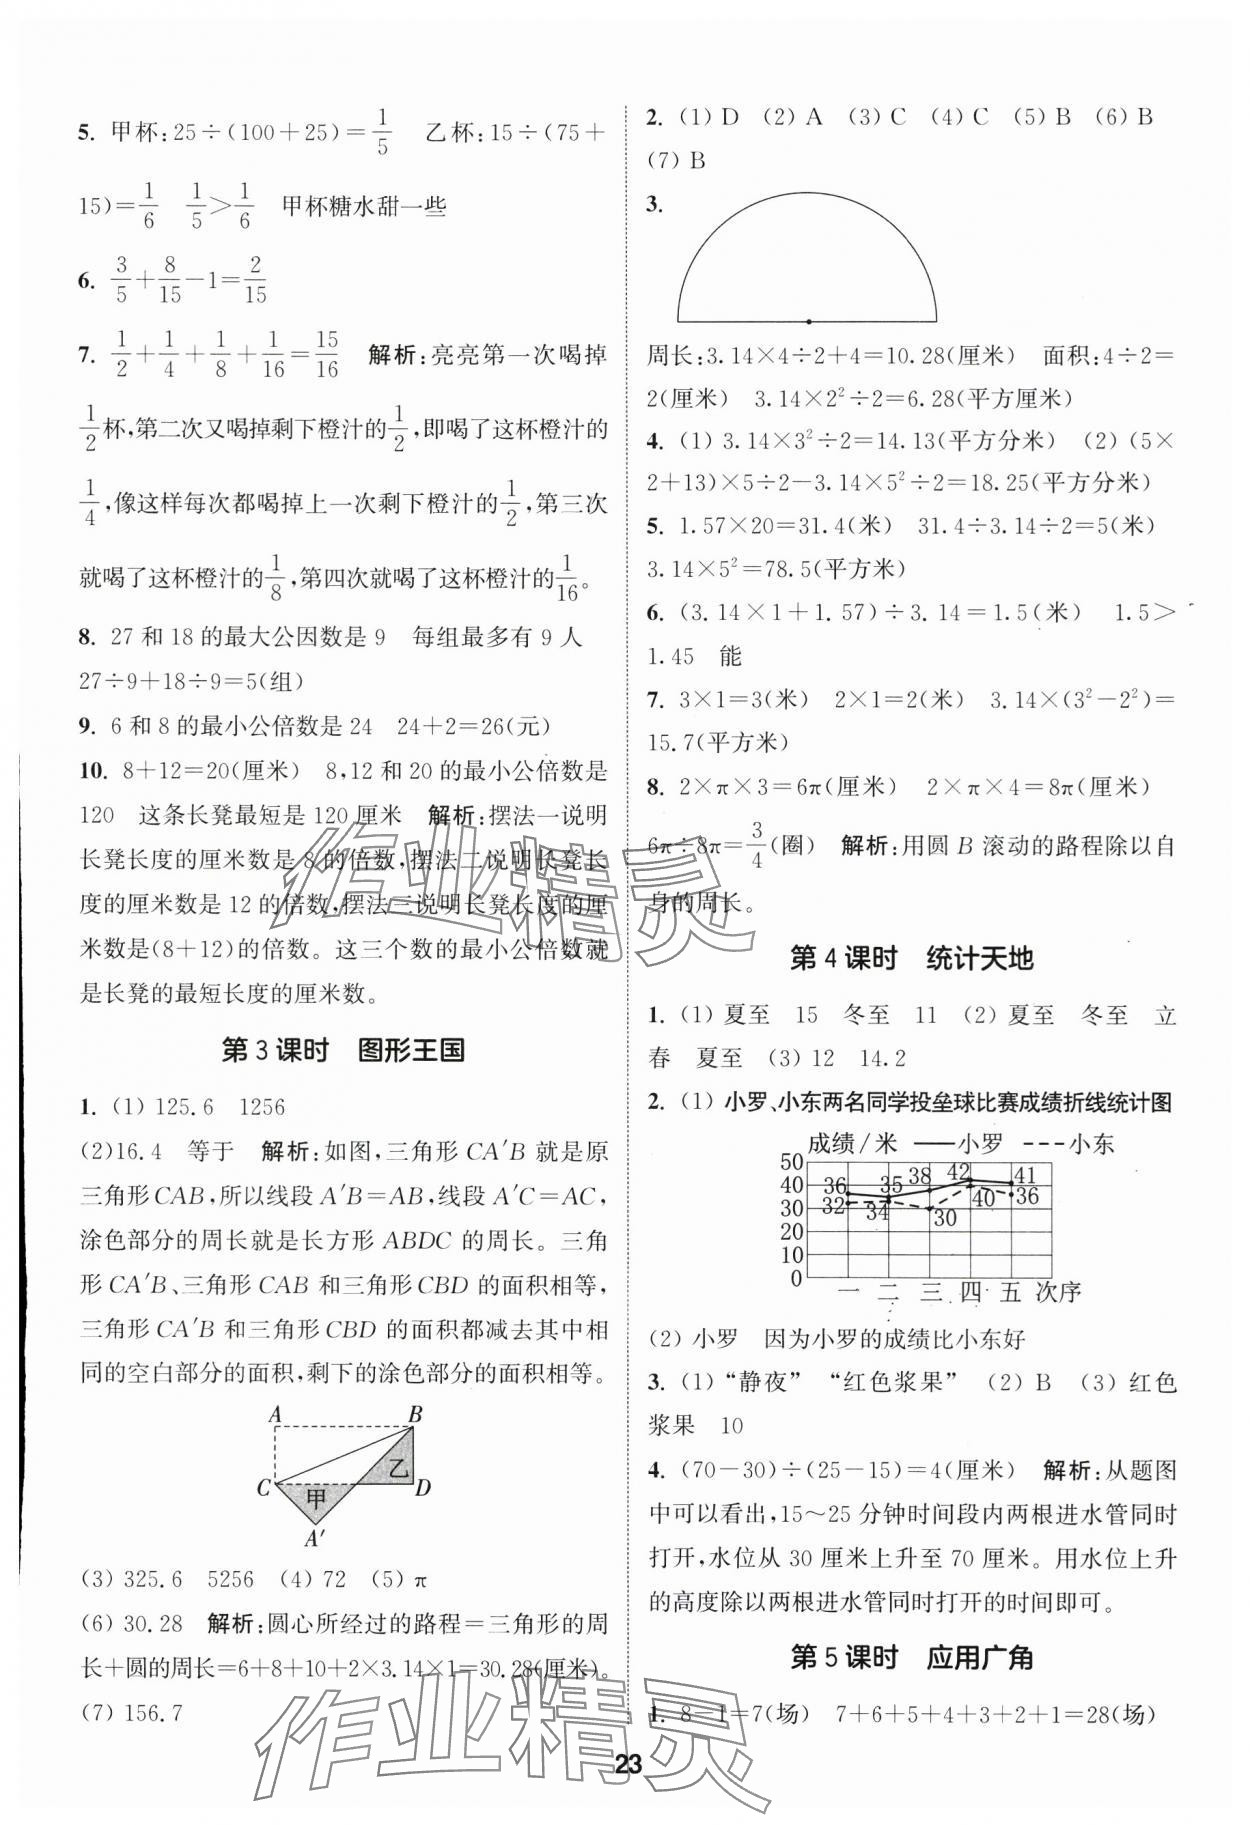 5. 甲杯:25÷(100+25)=1/5　乙杯:15÷(75+
15)=1/6　1/5>1/6　甲杯糖水甜一些
6. 3/5+8/15-1=2/15
7. 1/2+1/4+1/8+1/16=15/16　解析:亮亮第一次喝掉
1/2杯,第二次又喝掉剩下橙汁的1/2,即喝了这杯橙汁的
1/4,像这样每次都喝掉上一次剩下橙汁的1/2,第三次
就喝了这杯橙汁的1/8,第四次就喝了这杯橙汁的1/16。
8. 27 和 18 的最大公因数是 9　每组最多有 9 人
27÷9+18÷9=5(组)
9. 6 和 8 的最小公倍数是 24　24+2=26(元)
10. 8+12=20(厘米)　8,12 和 20 的最小公倍数是
120　这条长凳最短是 120 厘米　解析:摆法一说明
长凳长度的厘米数是 8 的倍数,摆法二说明长凳长
度的厘米数是 12 的倍数,摆法三说明长凳长度的厘
米数是(8+12)的倍数。这三个数的最小公倍数就
是长凳的最短长度的厘米数。
第 3 课时　图形王国
1. (1) 125.6　1256
(2)16.4　等于　解析:如图,三角形 CA′B 就是原
三角形 CAB,所以线段 A′B=AB,线段 A′C=AC,
涂色部分的周长就是长方形 ABDC 的周长。三角
形 CA′B、三角形 CAB 和三角形 CBD 的面积相等,
三角形 CA′B 和三角形 CBD 的面积都减去其中相
同的空白部分的面积,剩下的涂色部分的面积相等。
A　B
乙
C　甲　D
A′
(3) 325.6　5256　(4) 72　(5) π
(6) 30.28　解析:圆心所经过的路程=三角形的周
长+圆的周长=6+8+10+2×3.14×1=30.28(厘米)。
(7) 156.7
2. (1) D　(2) A　(3) C　(4) C　(5) B　(6) B
(7) B
3.
周长:3.14×4÷2+4=10.28(厘米)　面积:4÷2=
2(厘米)　3.14×2²÷2=6.28(平方厘米)
4. (1) 3.14×3²÷2=14.13(平方分米)　(2) (5×
2+13)×5÷2-3.14×5²÷2=18.25(平方分米)
5. 1.57×20=31.4(米)　31.4÷3.14÷2=5(米)
3.14×5²=78.5(平方米)
6. (3.14×1+1.57)÷3.14=1.5(米)　1.5>
1.45　能
7. 3×1=3(米)　2×1=2(米)　3.14×(3²-2²)=
15.7(平方米)
8. 2×π×3=6π(厘米)　2×π×4=8π(厘米)
6π÷8π=3/4(圈)　解析:用圆 B 滚动的路程除以自
身的周长。
第 4 课时　统计天地
1. (1) 夏至　15　冬至　11　(2) 夏至　冬至　立
春　夏至　(3) 12　14.2
2. (1) 小罗、小东两名同学投垒球比赛成绩折线统计图
成绩/米　——小罗　---小东
50
40　36　35　38　42　41
30　32　34　30　40　36
20
10
0
一　二　三　四　五　次序
(2) 小罗　因为小罗的成绩比小东好
3. (1) “静夜”　“红色浆果”　(2) B　(3) 红色
浆果　10
4. (70-30)÷(25-15)=4(厘米)　解析:从题图
中可以看出,15～25 分钟时间段内两根进水管同时
打开,水位从 30 厘米上升至 70 厘米。用水位上升
的高度除以两根进水管同时打开的时间即可。
第 5 课时　应用广角
1. 8-1=7(场)　7+6+5+4+3+2+1=28(场)
23
作业精灵
作业精灵